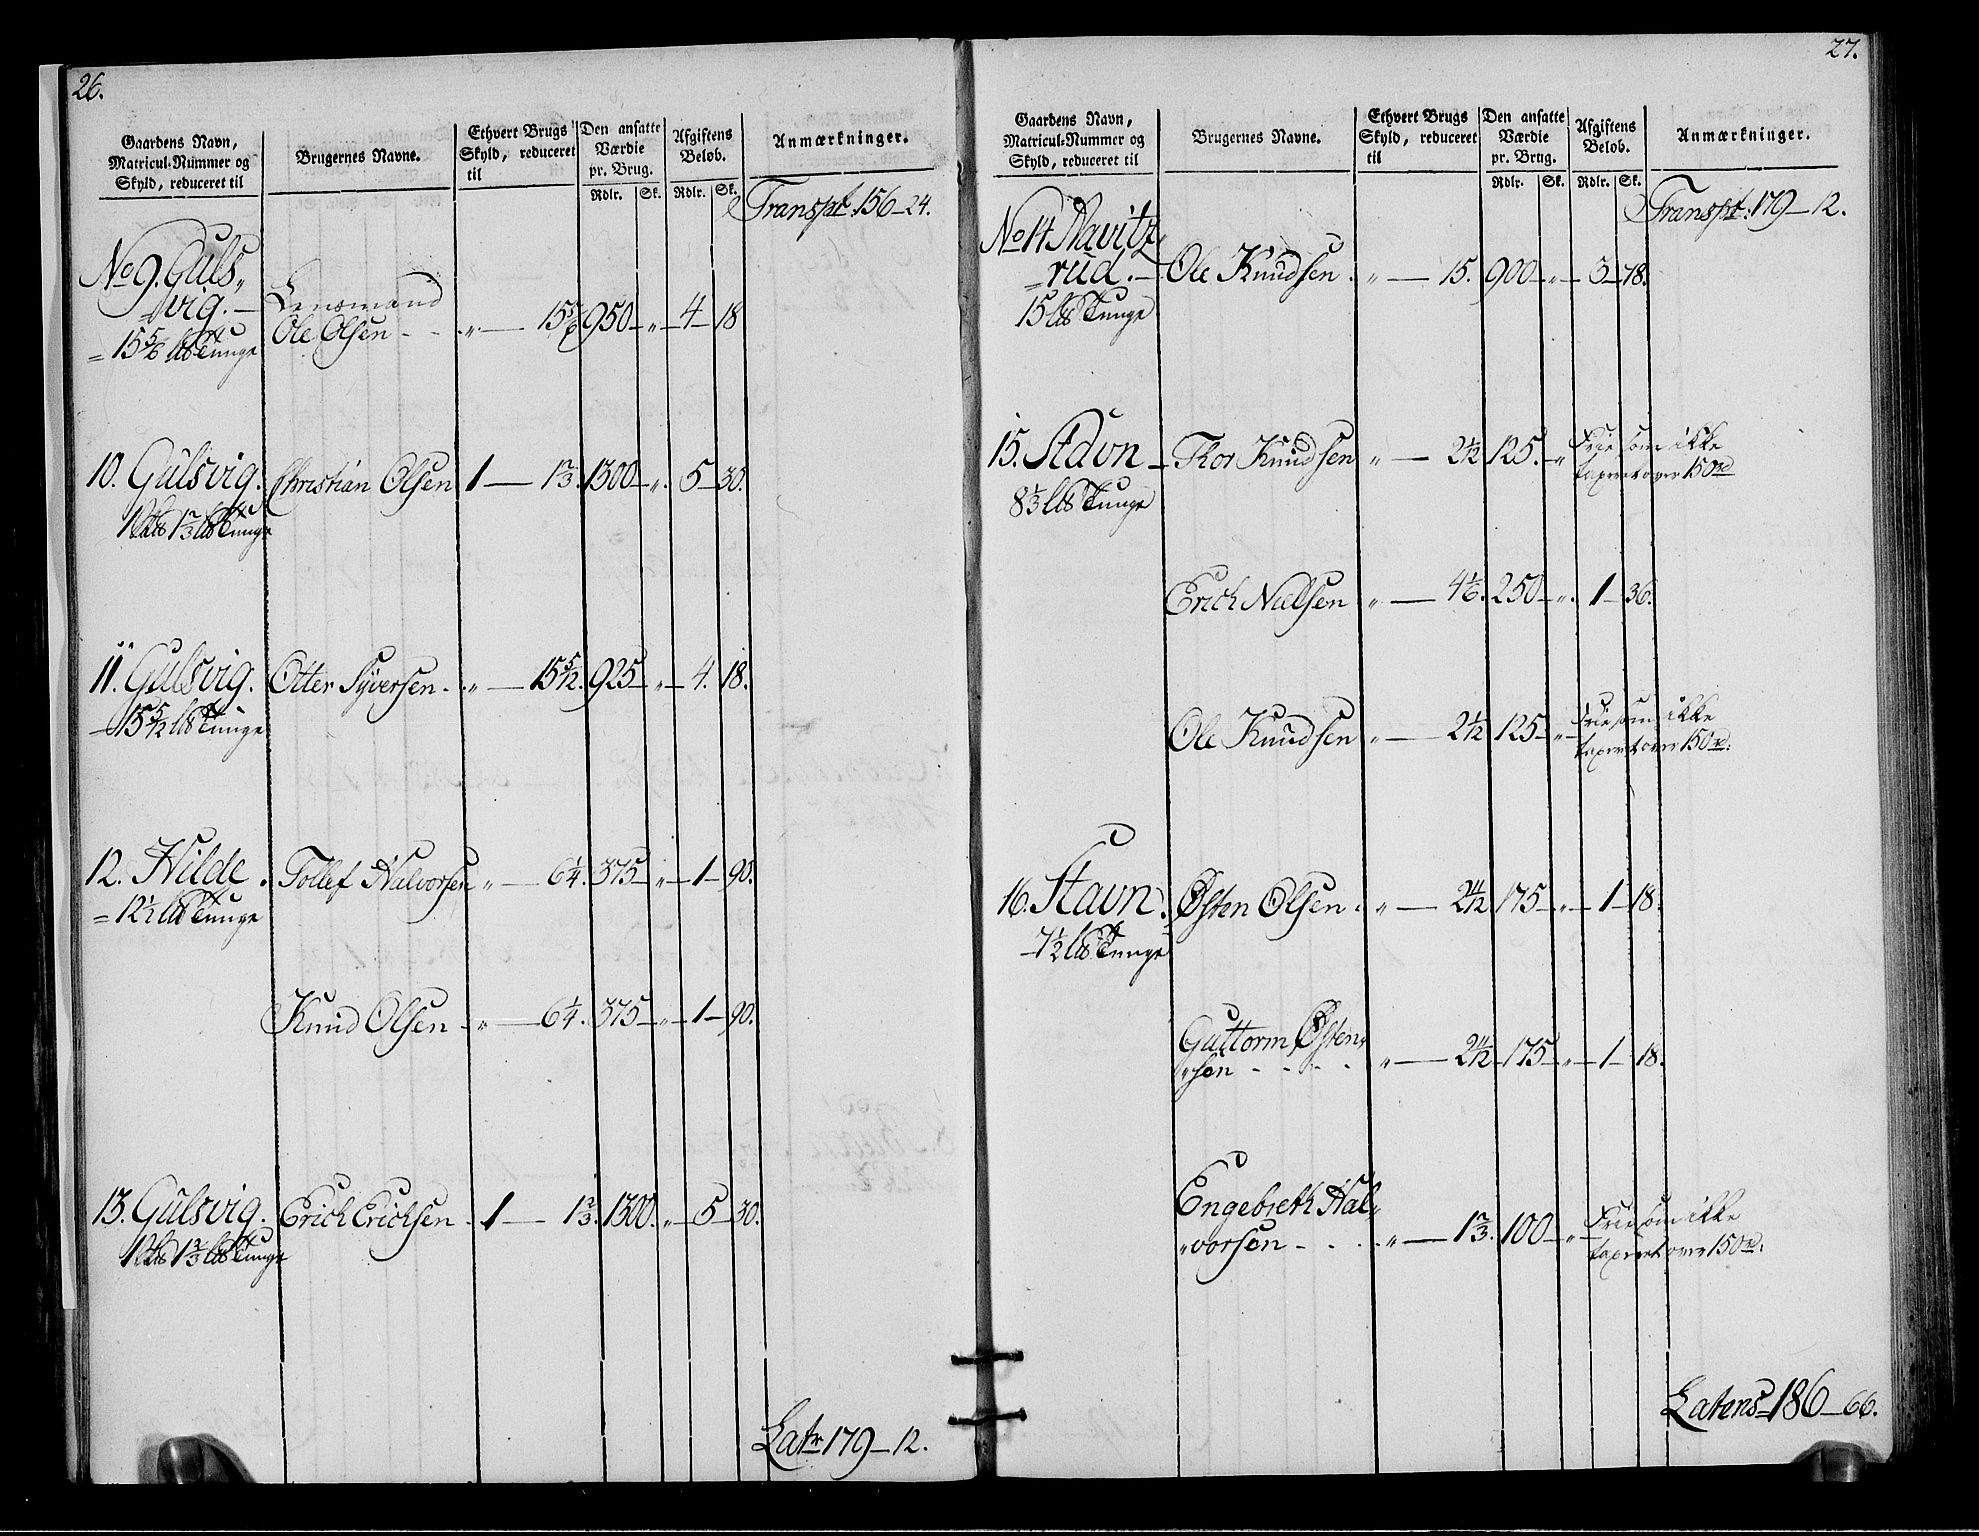 26.
Gaardens Navn, Matricul-Nummer og Skyld, reduceret til | Brugernes Navne. | Ethvert Brugs Skyld, reduceret til | Den ansatte Værdie pr. Brug. | Afgiftens Beløb. | Anmærkninger.
Rdlr. | Sk. | Rdlr. | Sk.
Transpt: 156 – 24.
No 9. Guls„
vig. – Lensmand
Ole Olsen - - „ — 15 5/6 950 – „ – 4 – 18
= 15 5/6 lb Tunge
10. Gulsvig. Christian Olsen 1 — 1 2/3. 1300 – „. 5 – 30.
1 1 2/3 lb Tunge
11. Gulsvig. Otter Syversen. „ — 15 5/12. 925 – „ – 4. 18.
– 15 5/12 lb Tunge
12. Hilde. Tollef Halvorsen „ — 6 1/4. 375 – „ – 1 – 90.
= 12 1/2 lb Tunge
Knud Olsen – „ — 6 1/4. 375 – „ – 1 – 90.
13. Gulsvig. Erich Erichsen. 1 — 1 2/3. 1300. „ – 5 – 30.
1 1 2/3 lb Tunge
Latr 179 – 12.
27.
Gaardens Navn, Matricul-Nummer og Skyld, reduceret til | Brugernes Navne. | Ethvert Brugs Skyld, reduceret til | Den ansatte Værdie pr. Brug. | Afgiftens Beløb. | Anmærkninger.
Rdlr. | Sk. | Rdlr. | Sk.
Transpt: 179 – 12.
No 14 Navitz„
= rud. – Ole Knudsen. „ — 15. 900 – „ – 3 – 78.
15 lb Tunge
15. Stavn – Thor Knudsen „ — 2 1/2 125. „ Frie som ikke
taxeret over 150 rd
8 1/3 lb Tunge
Erich Nielsen „ — 4 1/6. 250 – „. 1 – 36.
Ole Knudsen „ — 2 1/2 125 – „ – Frie som ikke
taxeret over 150 rd:
16. Stavn. Østen Olsen. „ — 2 11/12 175 – „ – 1 – 18.
– 7 1/2 lb Tunge
Guttorm Østen„
„sen - - - - „ — 2 11/12 175 – „ – 1 – 18.
Engebreth Hal„
„vorsen - - - „ — 1 2/3. 100 – „ – Frie som ikke
taxeret over 150 rd:
Latens – 186 – 66.